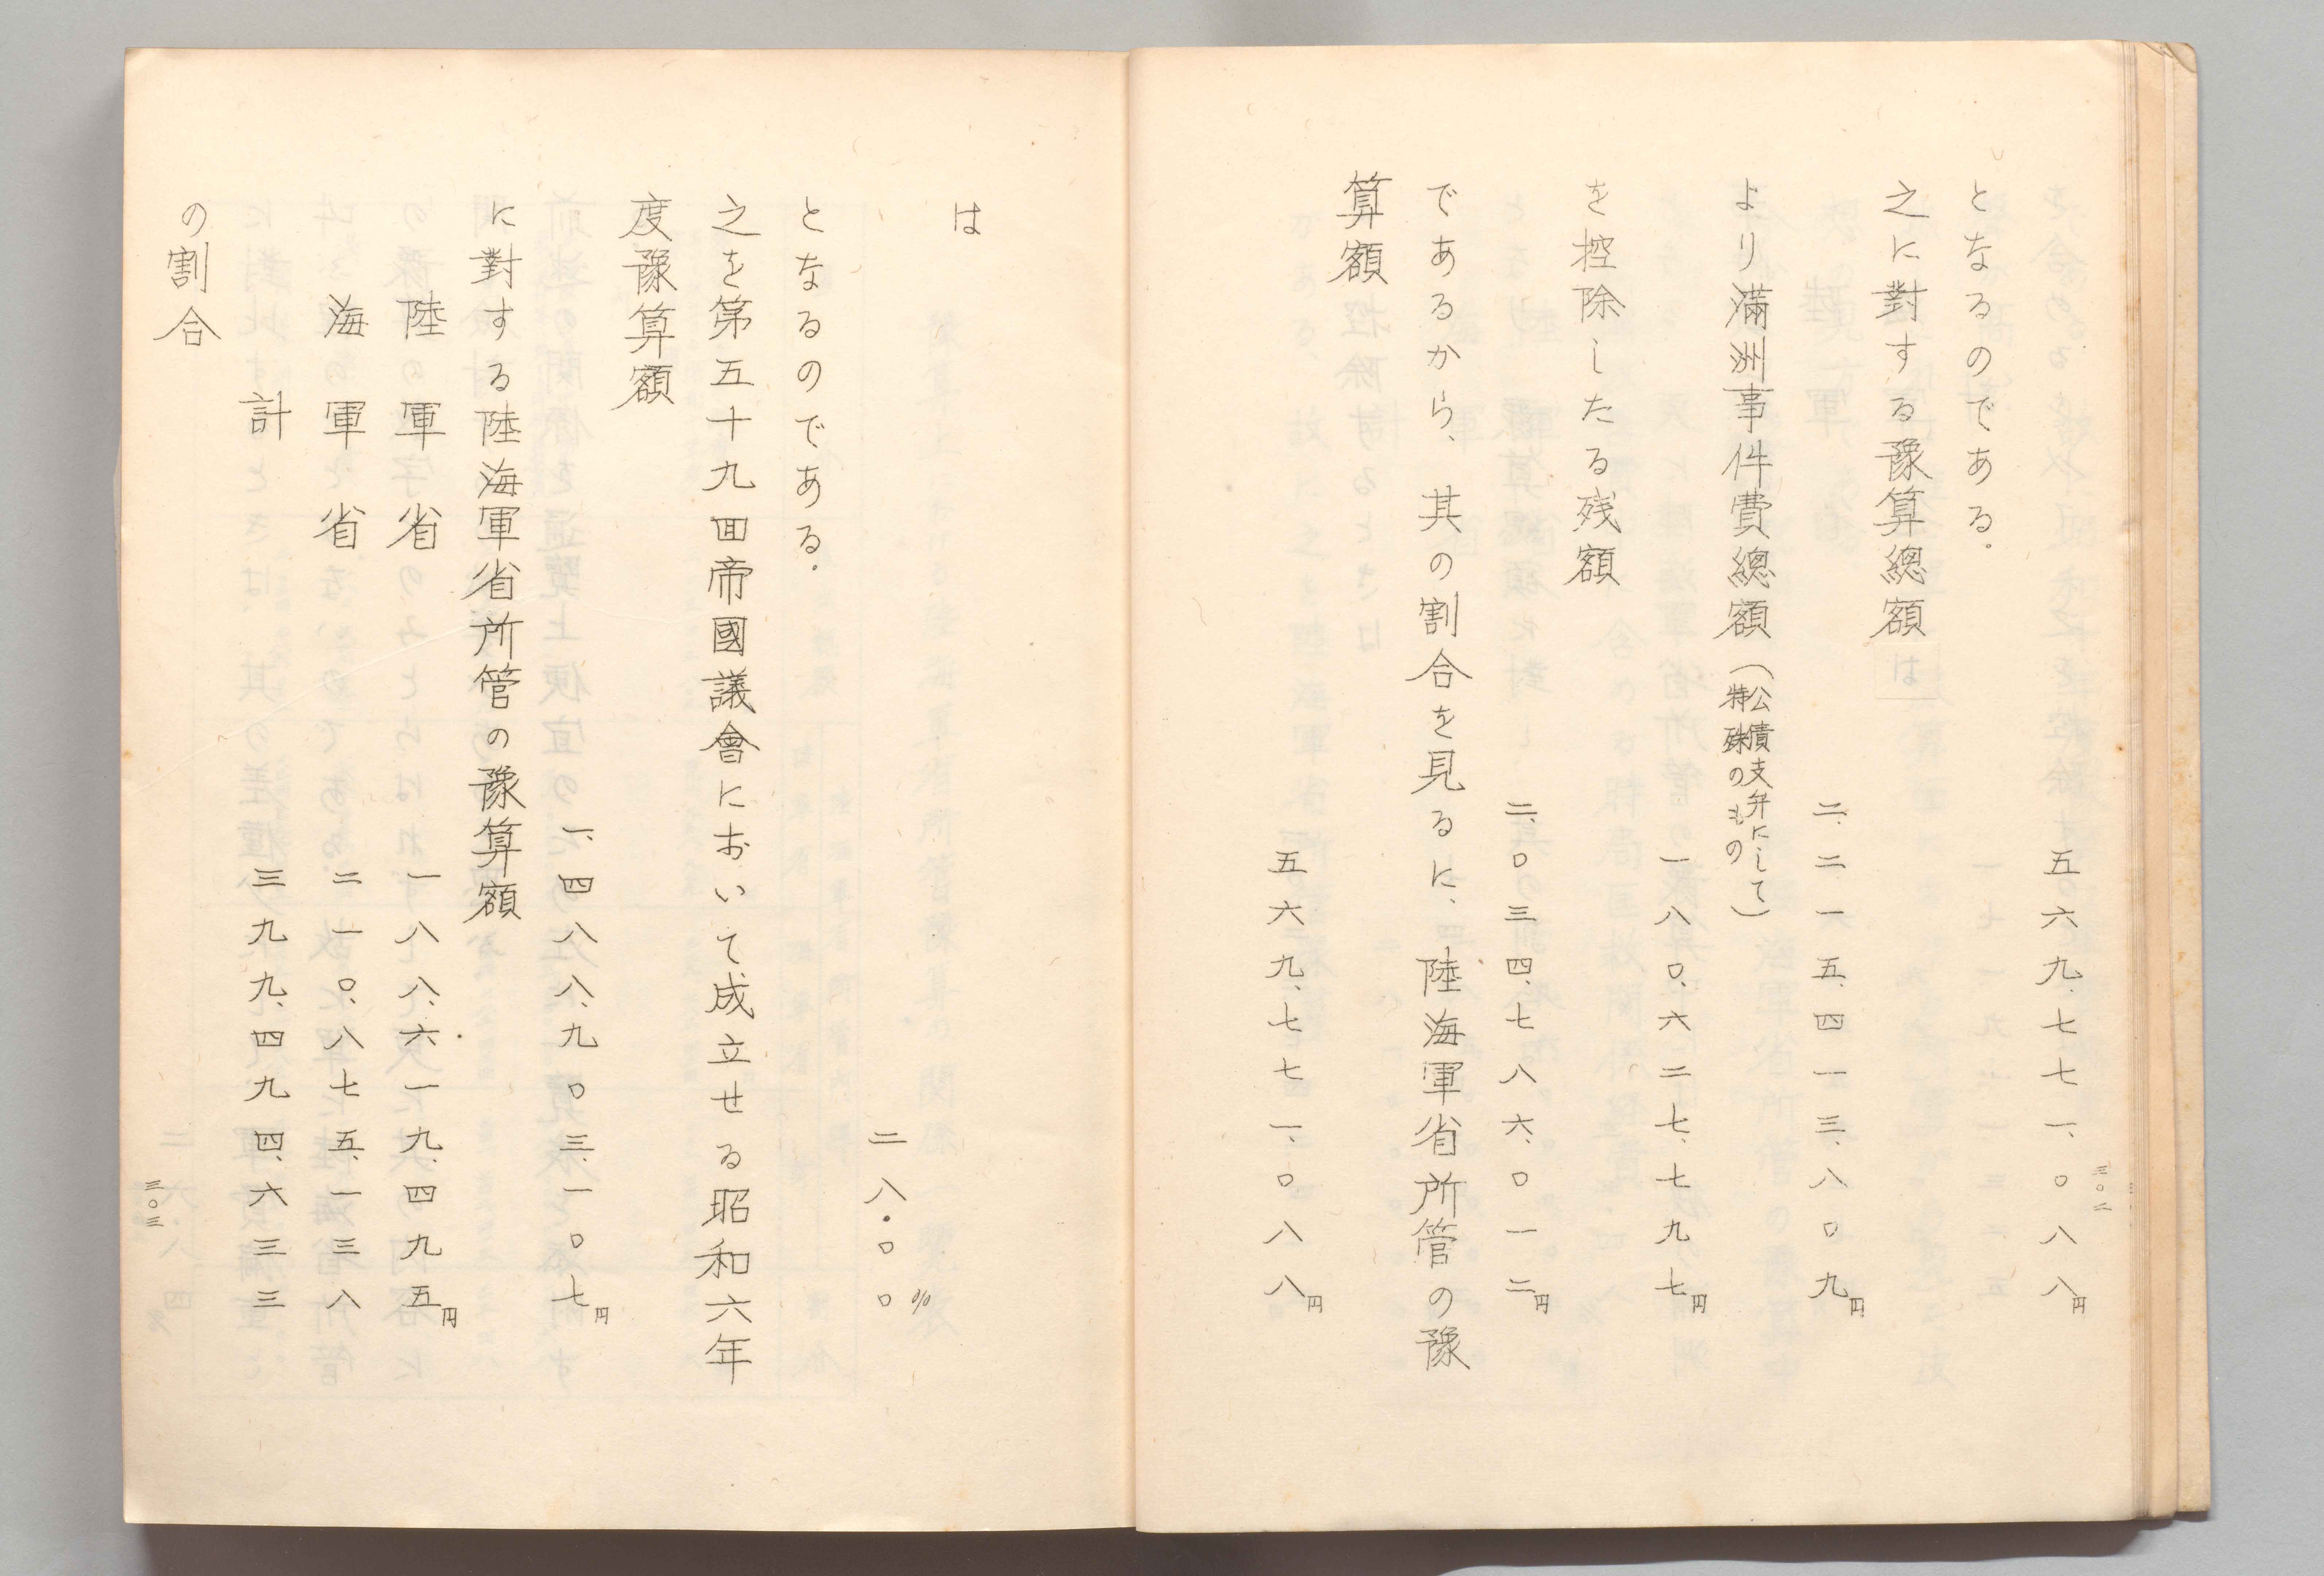 五六九、七七一、〇八八円
となるのである。
之に對する豫算總額
二、二一五、四一三、八〇九円
より滿洲事件費總額（公債支弁にして特殊のもの）
一八〇、六二七、七九七円
を控除したる残額
二、〇三四、七八六、〇一二円
であるから、其の割合を見るに、陸海軍省所管の豫
算額
五六九、七七一、〇八八円
三〇二
は
二八・〇〇%
となるのである。
之を第五十九回帝國議會において成立せる昭和六年
度豫算額
一、四八八、九〇三、一〇七円
に對する陸海軍省所管の豫算額
陸軍省 一八八、六一九、四九五円
海軍省 二一〇、八七五、一三八
計 三九九、四九四、六三三
の割合
三〇三